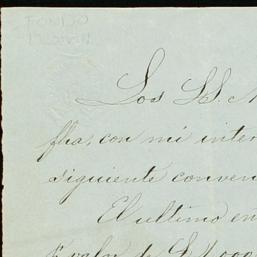 FONDO
Los SS.
fha, con mi inter
siguiente conven
El ultimo en
$1,000